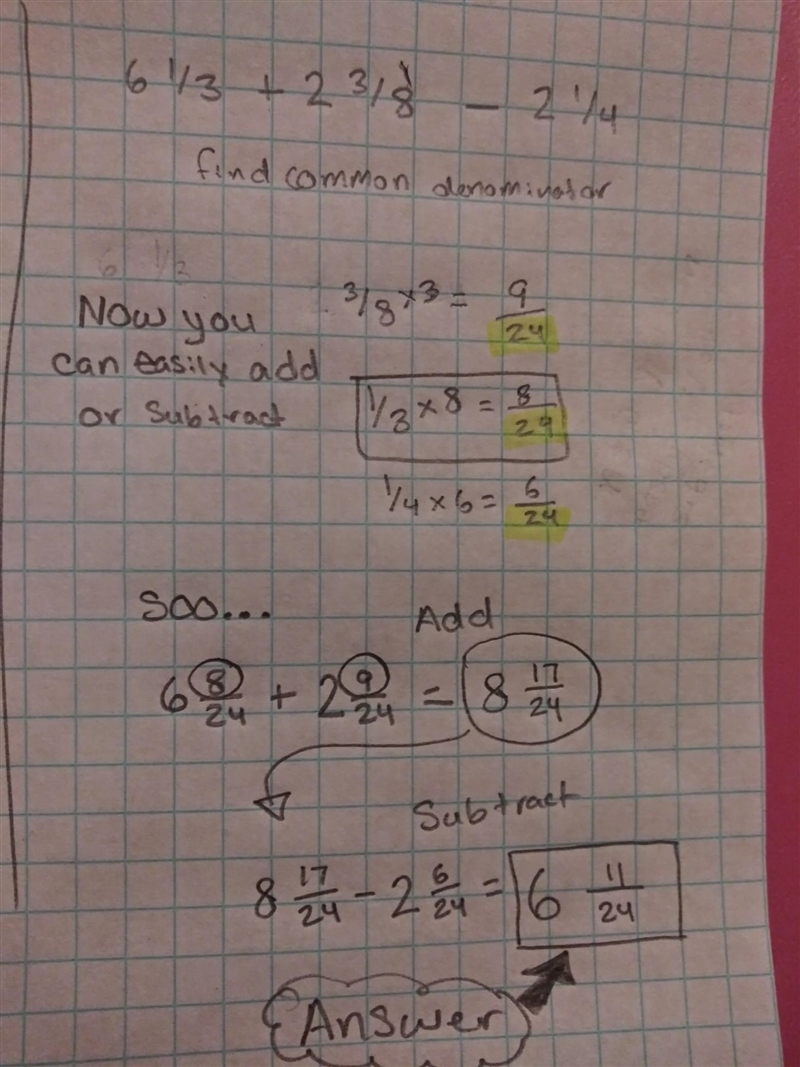 6 1/3 + 2 3/8 - 2 1/4
find common denominator
6 1/3
Now you
can easily add
or Subtract
3/8 × 3 = 9/24
1/3 × 8 = 8/24
1/4 × 6 = 6/24
Soo...
Add
6 8/24 + 2 9/24 = 8 17/24
Subtract
8 17/24 - 2 6/24 = 6 11/24
Answer